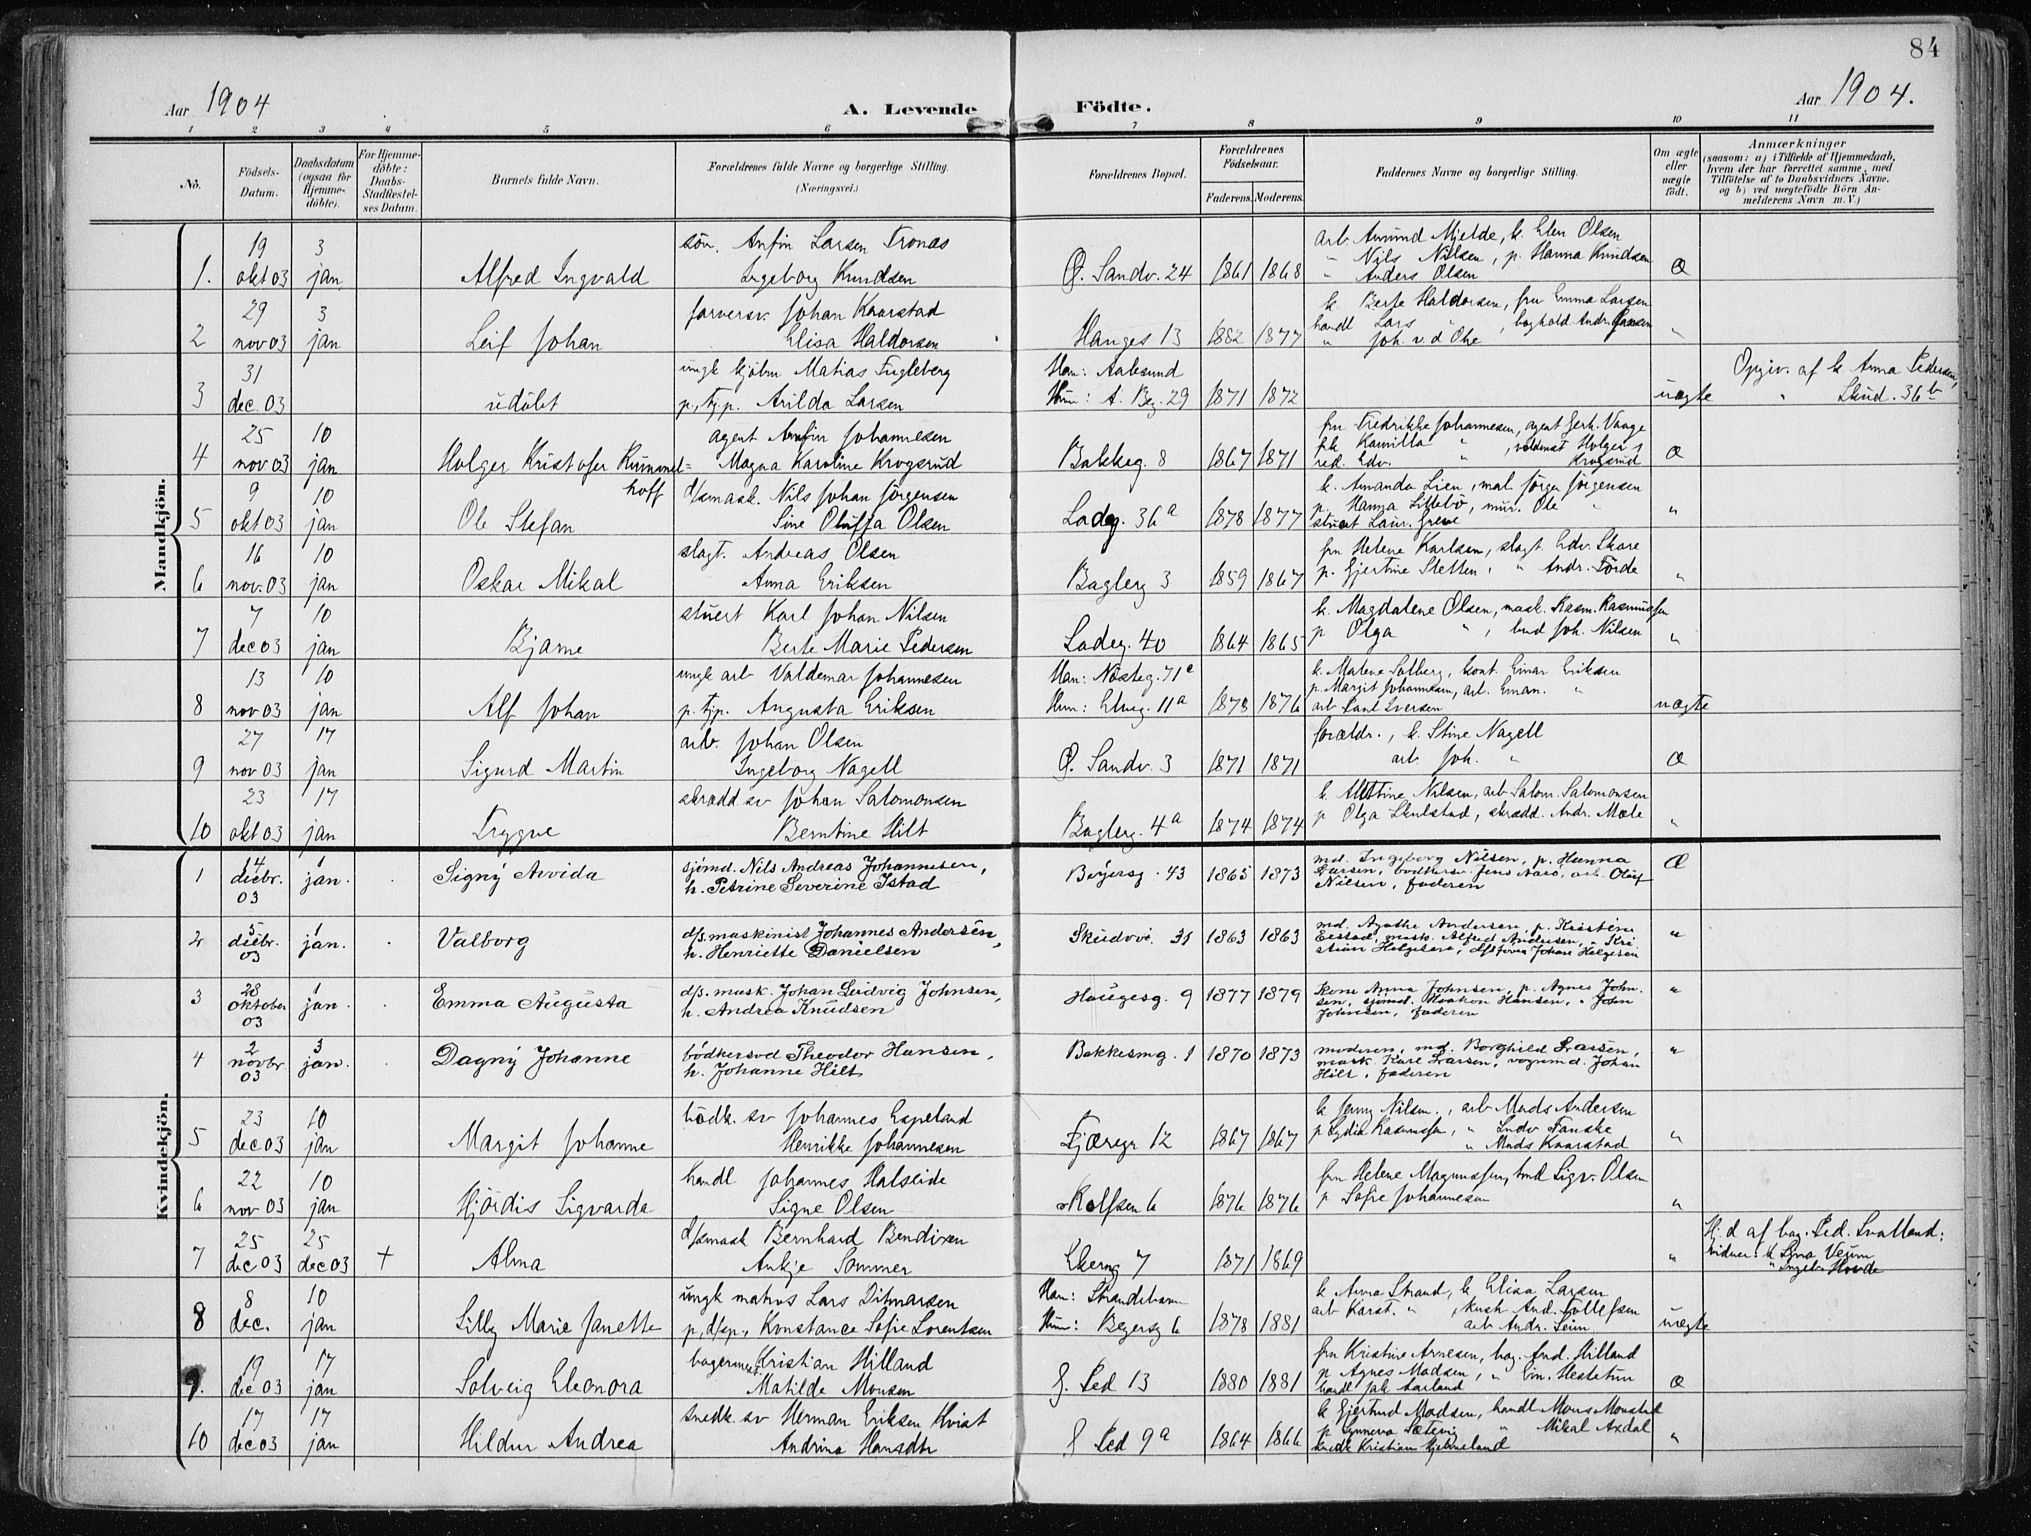 84
Aar 1904
A. Levende Födte.
Aar 1904.
1 2 3 4 5 6 7 8 9 10 11
No.
Födsels-Datum.
Daabsdatum (ogsaa for Hjemme-döbte).
For Hjemme-döbte: Daabs-Stadfæstel-ses Datum.
Barnets fulde Navn.
Forældrenes fulde Navne og borgerlige Stilling.
(Næringsvei.)
Forældrenes Bopæl.
Forældrenes Födselsaar.
Faderens. Moderens.
Faddernes Navne og borgerlige Stilling.
Om ægte eller uægte født.
Anmærkninger
(saasom: a) i Tilfælde af Hjemmedaab,
hvem der har forrettet samme, med
Tilföielse af to Daabsvidners Navne,
og b) ved uægtefödte Börn An-
melderens Navn m. V.)
Mandkjön.
1. 19 okt 03 3 jan. Alfred Ingvald
Anfin Larsen Tronæs
Ingeborg Knudsen
Ø. Sandv. 24 1861 1868
arb Amund Mjelde, k. Elen Olsen
" Nils Nilsen, p. Hanna Knudsen
" Anders Olsen
Æ
2 29 nov 03 3 jan Leif Johan
farversv. Johan Kaarstad
Elisa Haldorsen
Hauges 13 1882 1877
k. Berte Haldorsen, fru Emma Larsen
handl Lars " , boghold. Andr. Hansen
" Joh. v. d Ohe
"
3 31 dec. 03 udöbt
ungk kjöbm Matias Fugleberg
p, tj.p. Arilda Larsen
Han: Aalesund
Hun: A. Beg. 29 1871 1872
uægte
Opgiv. af k Anna Pedersen,
" Skud. 36 b
4 25 nov 03 10 jan Holger Kristofer Rummel=
hoff
agent Anfin Johannesen
Magna Karoline Krogsrud
Bakkeg. 8 1867 1871
fru Fredrikke Johannesen, agent Gerh. Vaage
frk Kamilla "
red. Edv. " Krogsrud
Æ
5 9 okt 03 10 jan Ole Stefan
d/smask. Nils Johan Jörgensen
Sine Oluffa Olsen
Ladeg. 36 a 1878 1877
k. Amanda Lien, mal. Jörgen Jörgensen
p. Hanna Littebö, mur. Ole "
stuert Laur. Greve
"
6 16 nov. 03 10 jan Oskar Mikal
slagt. Andreas Olsen
Anna Eriksen
Baglerg 3 1859 1867
fru Helene Karlsen, slagt. Edv. Skare
p. Gjertine Sletten, " Andr. Förde
"
7 7 dec 03 10 jan Bjarne
stuert Karl Johan Nilsen
Berte Marie Pedersen
Ladeg. 40 1864 1865
k. Magdalene Olsen, mask. Rasm. Rasmussen
p Olga " , bud Joh. Nilsen
"
8 13 nov 03 10 jan Alf Johan
ungk arb Valdemar Johannesen
p. tj.p. Augusta Eriksen
Han: Nösteg. 71 e
Hun: Elveg. 11 a 1878 1876
k. Malene Solberg, kont. Einar Eriksen
p. Margit Johannesen, arb. Eman. "
arb Paul Iversen
uægte
9 27 nov 03 17 jan Sigurd Martin
arb. Johan Olsen
Ingeborg Nagell
Ø. Sandv. 3 1871 1871
forældr., k. Stine Nagell
arb. Joh. "
Æ
10 23 okt 03 17 jan Trygve
skrædd.sv Johan Salomonsen
Berntine Hilt
Baglerg. 4 a 1874 1874
k. Nilsen, arb Salom. Salomonsen
p Olga Skulstad, skrædd. Andr. Mæle
"
Kvindekjön.
1 14 decbr. 03 1 jan. Signy Arvida
sjömd. Nils Andreas Johannesen,
h. Petrine Severine Istad
Beyersg. 43 1865 1873
md. Ingeborg Nilsen, p. Hanna
Larsen, bödkersv. Jens Aarö, arb. Oluf
Nilsen, faderen
Æ
2 5 decbr. 03 1 jan. Valborg
d/s. maskinist Johannes Andersen,
h. Henriette Danielsen
Skudevi. 31 1863 1863
md. Agathe Andersen, p. Kristine
Eistad, mask. Alfred Andersen, " Kri
stian Helgesen, d/s Johan Helgesen
"
3 28 oktober 03 1 jan. Emma Augusta
d/s. mask. Johan Ludvig Johnsen,
h. Andrea Knudsen
Haugesg. 9 1877 1879
Kone Anna Johnsen, p. Agnes John-
sen, sjömd. Haakon Hansen, " John
Johnsen, faderen
"
4 2 novbr 03 3 jan. Dagny Johanne
bödkersvd Theodor Hansen,
h. Johanne Hilt
Bakkesmg. 1 1870 1873
moderen, md. Borghild Larsen,
mask Karl Larsen, vognmd. Johan
Hilt, faderen
"
5 23 dec 03 10 jan Margit Johanne
bödk. sv Johannes Espeland
Henrikke Johannesen
Fjæregr 12 1867 1867
k Jenny Nilsen., arb Mads Andersen
p Lydia Rasmussen, " Ludv Danske
" Mads Kaarstad
"
6 22 nov 03 10 jan Hjördis Sigvarda
handl Johannes Halseide
Signe Olsen
Rolfsen 6 1876 1876
fru Helene Magnussen, bmd Sigv. Olsen
p Sofie Johannesen
"
7 25 dec 03 25 dec 03 + Alma
d/smask Bernhard Bendixen
Ankje Sommer
Ekerng 7 1871 1869
"
Hj. d af bag. Ped. Svalland:
vidner: k Lyna Vevum
" Ingeb. Hovde
8 8 dec. 10 jan Lilly Marie Janette
ungk matros Lars Ditmarsen
p, d/sp., Konstance Sofie Lorentsen
Han: Strandebarm
Hun: Begersg 6 1878 1881
k Anna Strand, k Elisa Larsen
arb Karst. " , mask And. Tollefsen
arb Andr. Seim
uægte
9. 19 dec 03 17 jan Solveig Eleonora
bagermest Kristian Hilland
Matilde Monsen
S. Ped 13 1880 1881
fru Kristine Arnesen, bag. And. Hilland
p Agnes Madsen, " Em. Hestetun
handl Jak Aarland
Æ
10 17 dec 03 17 jan Hildur Andrea
snedk. sv Herman Eriksen Kvist
Andrina Hansdtr
S Ped 9 a 1864 1866
k Gjertrud Madsen, handl Mons Monstad
p Synneva Sætervig " Mikal Axdal
snedk Kristian Hjelmeland
"